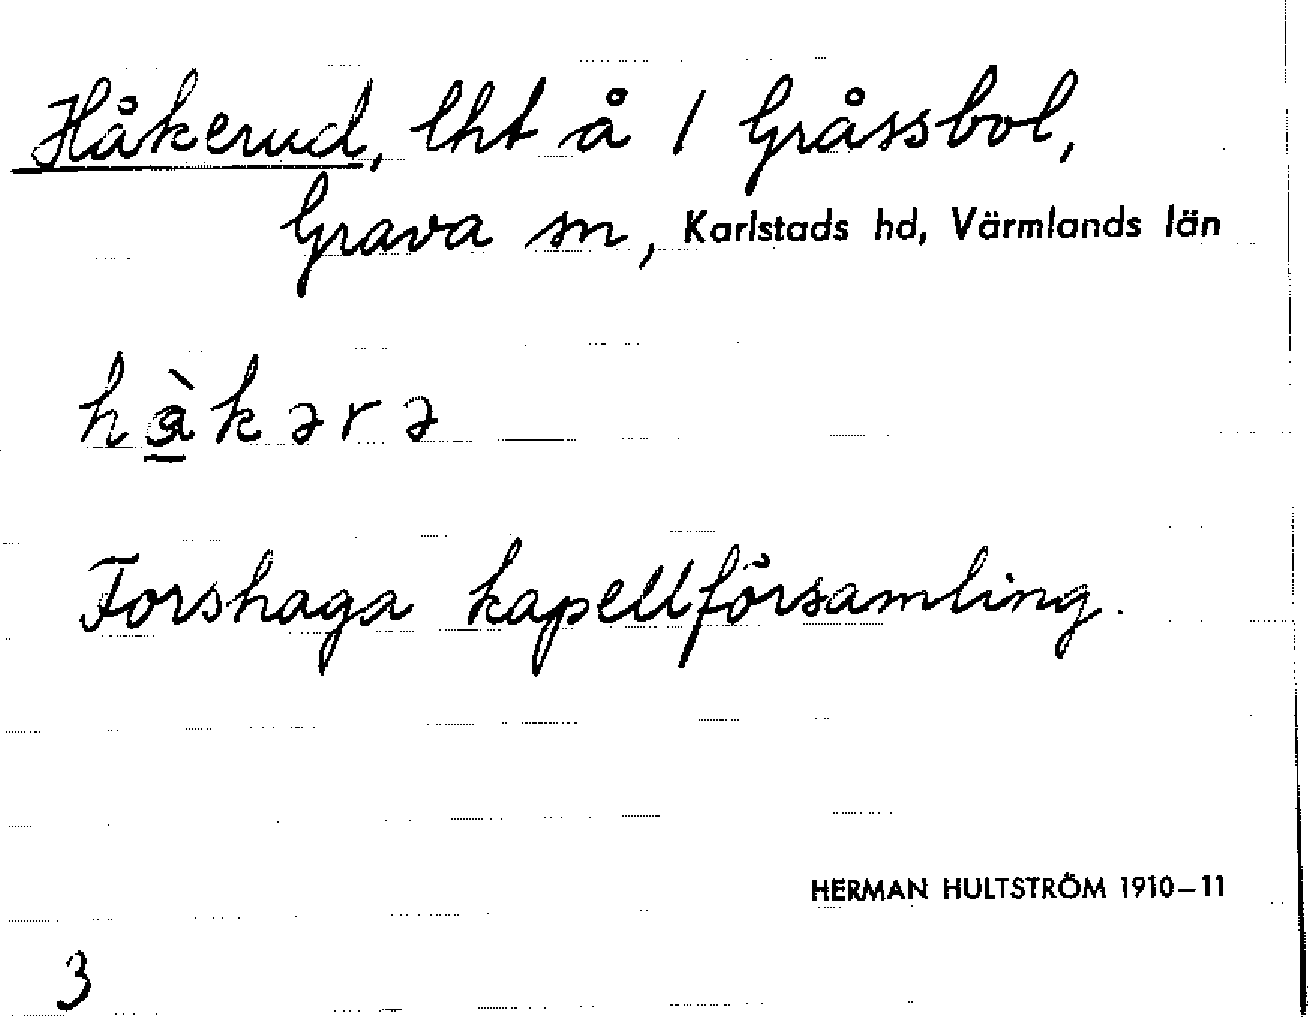 Håkerud, lht å 1 Gråssbol,
Grava sn, Karlstads hd, Värmlands län
hàkərə
Forshaga kapellförsamling.
HERMAN HULTSTRÖM 1910–11
3